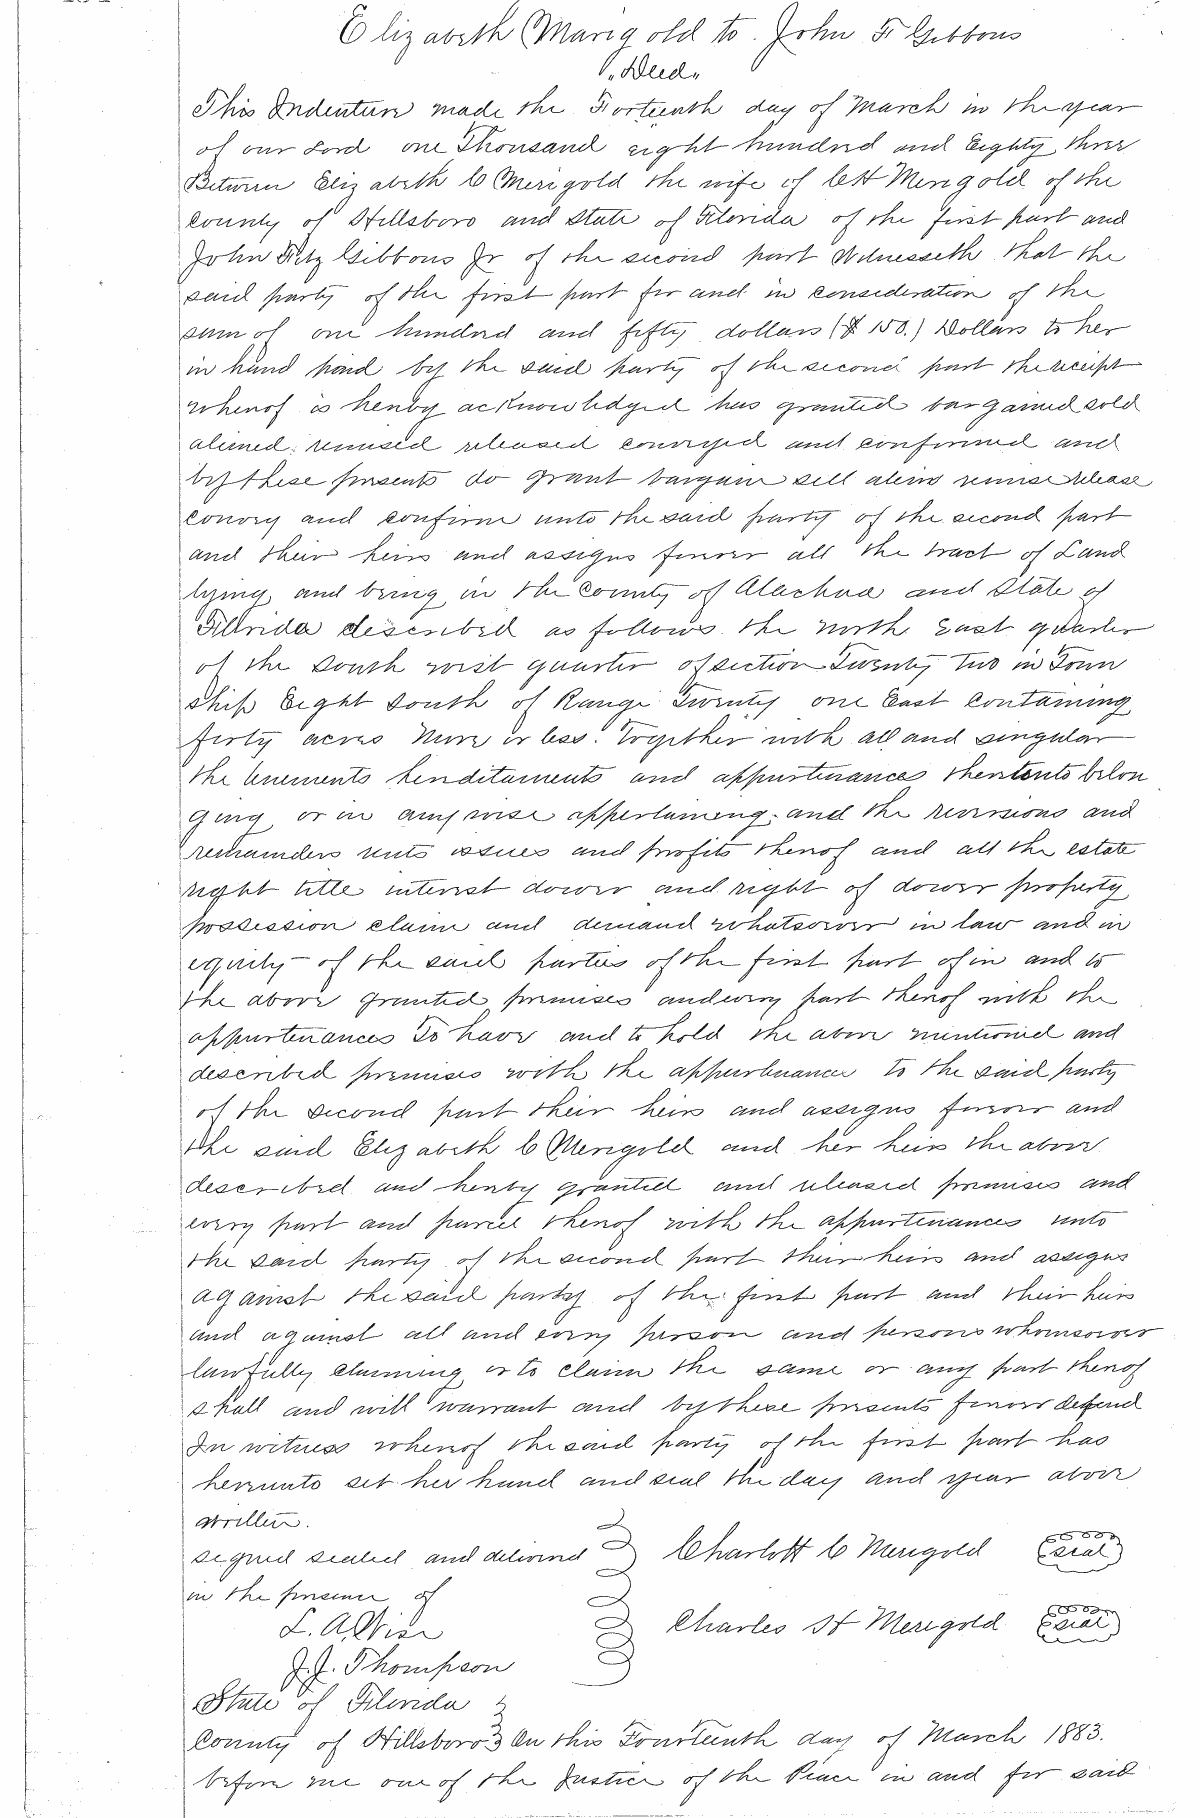 Elizabeth Marigold to John F Gibbons
"Deed"
This Indenture made the Forteenth day of March in the year
of our Lord one Thousand eight hundred and Eighty three
Between Elizabeth C Merigold the wife of C H Merigold of the
County of Hillsboro and State of Florida of the first part and
John Fitz Gibbons Jr of the second part Witnesseth that the
said party of the first part for and in consideration of the
sum of one hundred and fifty dollars ($ 150.) Dollars to her
in hand paid by the said party of the second part the receipt
whereof is hereby acknowledged has granted bargained sold
aliened remised released conveyed and confirmed and
by these presents do grant bargain sell alien remise release
convey and confirm unto the said party of the second part
and their heirs and assigns forever all the tract of Land
lying and being in the County of Alachua and State of
Florida described as follows the north East quarter
of the South west quarter of section Twenty two in Town
ship Eight South of Range Twenty one East Containing
forty acres More or less. Together with all and singular
the tenements hereditaments and appurtenances thereunto belon
ging or in anywise appertaining and the reversions and
remainders rents issues and profits thereof and all the estate
right title interest dower and right of dower property
possession claim and demand whatsoever in law and in
equity of the said parties of the first part of in and to
the above granted premises and every part thereof with the
appurtenances To have and to hold the above mentioned and
described premises with the appurtenance to the said party
of the second part their heirs and assigns forever and
the said Elizabeth C Merigold and her heirs the above
described and hereby granted and released premises and
every part and parcel thereof with the appurtenances unto
the said party of the second part their heirs and assigns
against the said party of the first part and their heirs
and against all and every person and persons whomsoever
lawfully claiming or to claim the same or any part thereof
shall and will warrant and by these presents forever defend
In witness whereof the said party of the first part has
hereunto set her hand and seal the day and year above
written.
signed sealed and delivered Charlott C Merigold seal
in the presence of
L. A. Wise Charles H Merigold seal
J. J. Thompson
State of Florida
County of Hillsboro On this Fourteenth day of March 1883.
before me one of the Justice of the Peace in and for said